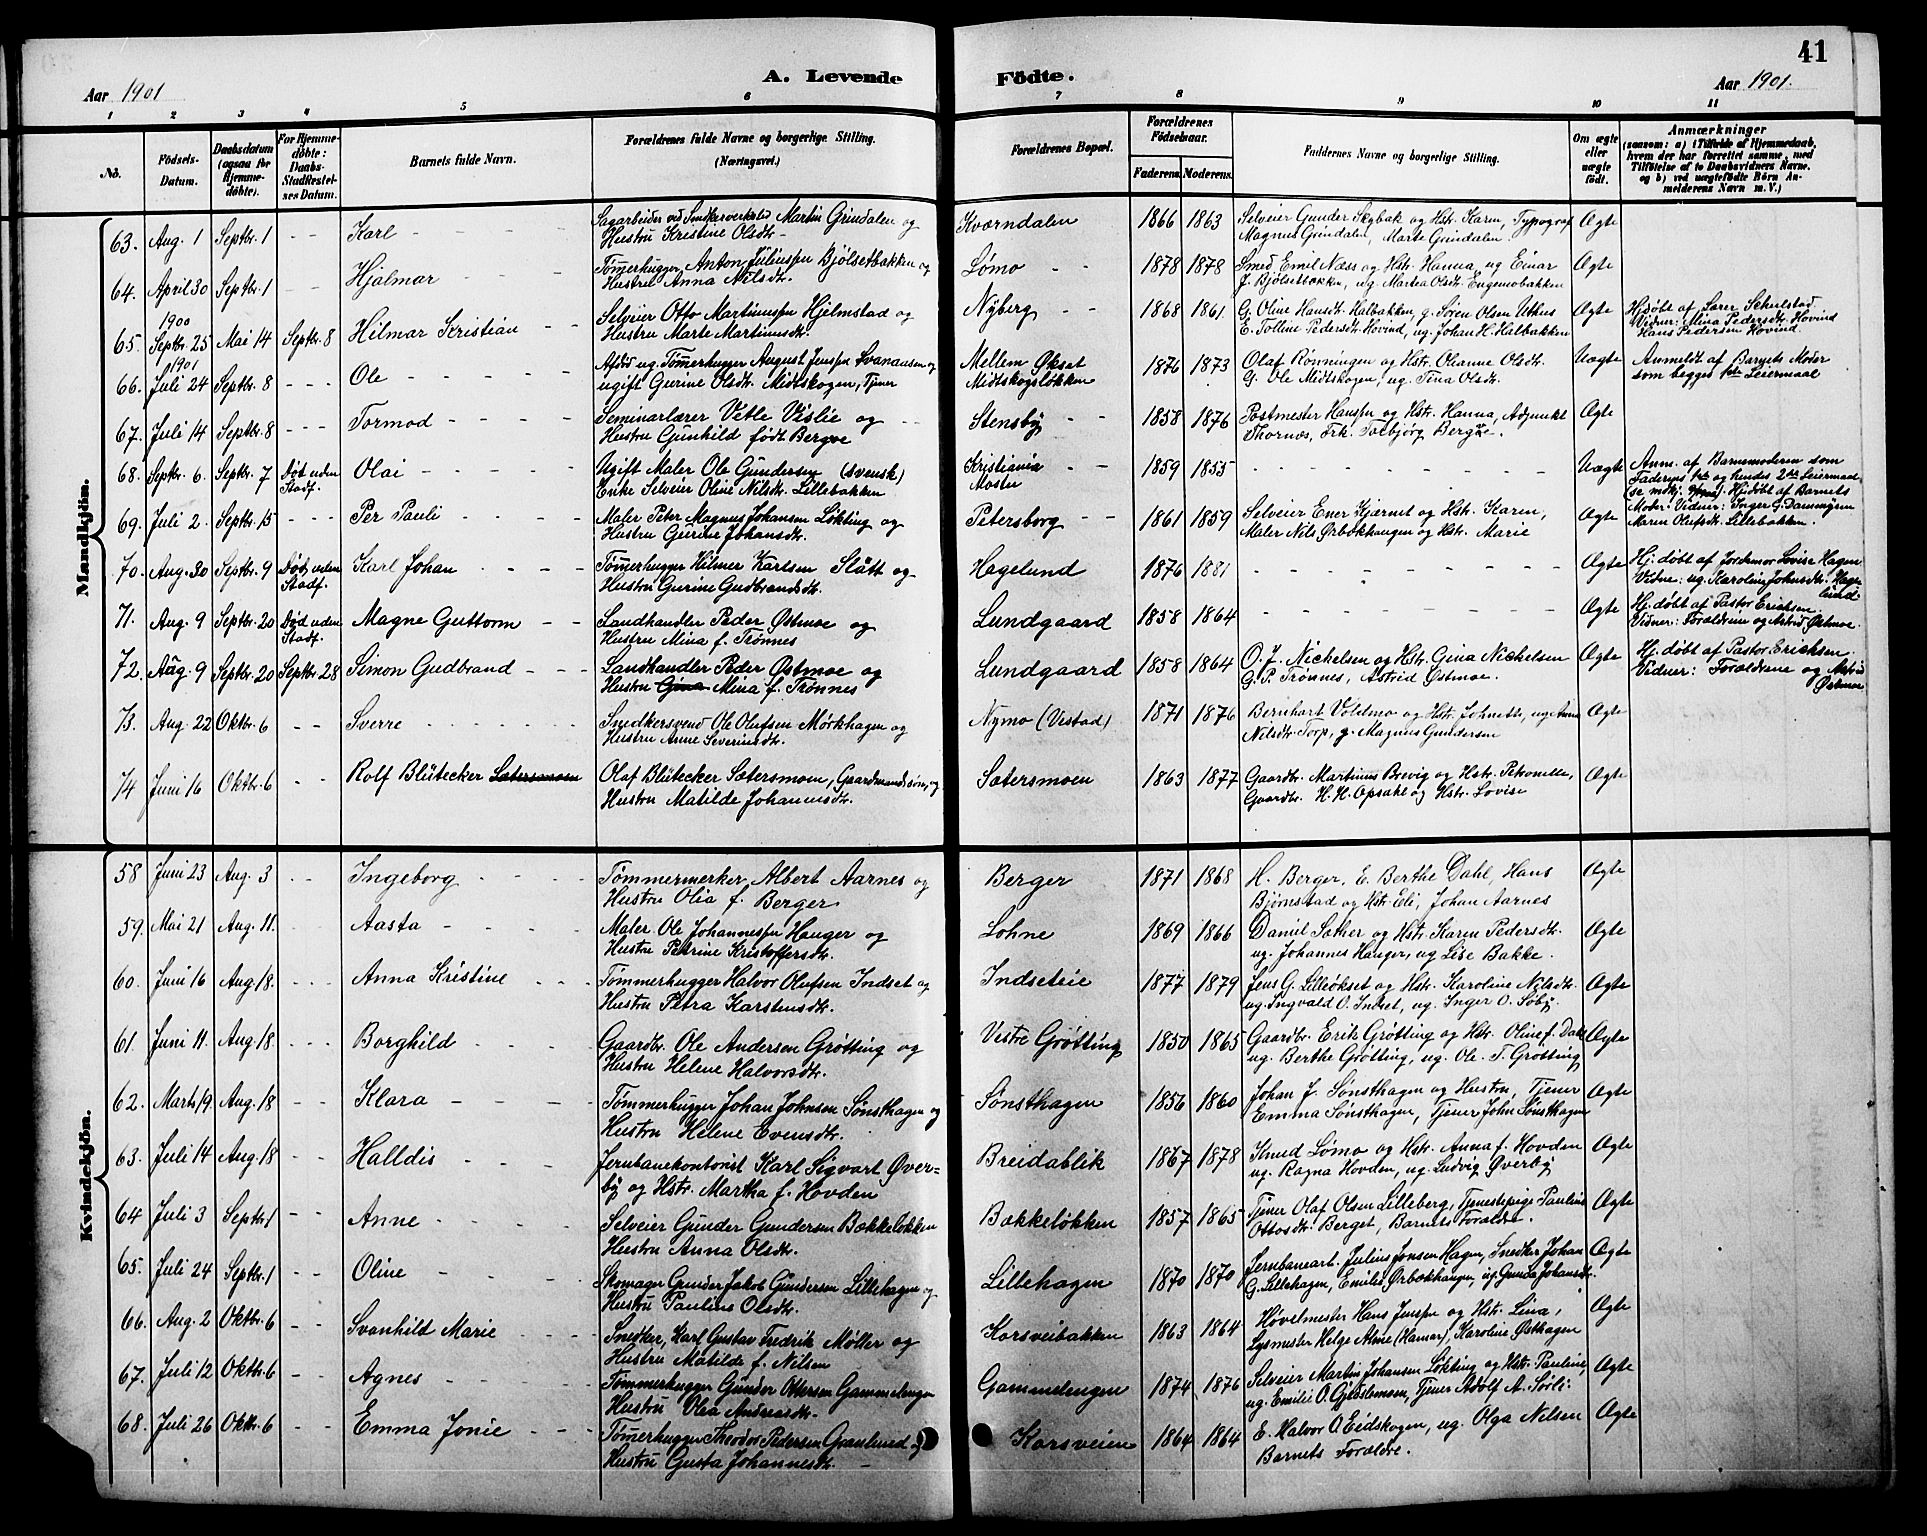 41
A. Levende Födte.
Aar 1901
Aar 1901.
1 2 3 4 5 6 7 8 9 10 11
No.
Födsels-Datum.
Daabsdatum (ogsaa for Hjemme-döbte).
For Hjemme-döbte: Daabs-Stadfæstel-ses Datum.
Barnets fulde Navn.
Forældrenes fulde Navne og borgerlige Stilling. (Næringsvei.)
Forældrenes Bopæl.
Forældrenes Födselsaar.
Faderens. Moderens.
Faddernes Navne og borgerlige Stilling.
Om ægte eller uægte födt.
Anmærkninger
(saasom: a) i Tilfælde af Hjemmedaab, hvem der har forrettet samme, med Tilföielse af to Daabsvidners Navne. og b) ved uægtefödte Börn An-melderens Navn m. V.)
Mandkjön.
63. Aug. 1 Septbr. 1 - - Karl - - - Sagarbeider ved Snedkerverksted Martin Grindalen og Kværndalen 1866 1863 Selveier Gunder Skybak og Hstr. Karen, Typograf Ægte
Hustru Kristine Olsdtr. Magnus Grindalen, Marte Grindalen.
64. April 30 Septbr. 1 - - Hjalmar - - - Tømmerhugger Anton Juliussen Bjölsetbakken og Lømo - - 1878 1878 Smed Emil Næss og Hstr. Hanna, ug Einar Ægte
Hustru Anna Nilsdtr. J. Bjölsetbakken, ug. Martea Olsdtr. Engemobakken
1900
65. Septbr. 25 Mai 14 Septbr. 8 Hilmar Kristian - - Selveier Otto Martinussen Hjelmstad og Nyberg - - 1868 1861 G. Oline Hansdtr. Halbakken, g. Sören Olsen Uthus Ægte Hjdøbt af Lærer Schulstad
Hustru Marte Martinusdtr. E. Tolline Pedersdtr. Hovind, ug. Johan H. Halbakken Vidner: Mina Pedersdtr. Hovind
Hans Pedersen Hovind.
1901
66. Juli 24 Septbr. 8 - - - Ole - - - - Afdöd ug. Tømmerhugger August Jenssen Svanaasen og Mellem Økset 1876 1873 Olaf Rønningen og Hstr. Oleanne Olsdtr. Uægte Anmeldt af Barnets Moder
ugift Gurine Olsdtr. Midtskogen, Tjener Midtskogsløkken G. Ole Midtskogen, ug. Tina Olsdtr. som begges 1ste Leiermaal
67. Juli 14 Septbr. 8 - - - Tormod - - - - Seminarlærer Vetle Vislie og Stensby - - 1858 1876 Postmester Hanssen og Hstr. Hanna, Adjunkt Ægte
Hustru Gunhild født Bergve Thornæs, Frk. Torbjörg Bergve.
68. Septbr. 6. Septbr. 7 Død uden Stadf. Olai - - - - Ugift Maler Ole Gundersen (svensk) Kristiania - - 1859 1855 - - - - Uægte Anm. af Barnemoderen som
Enke Selveier Oline Nilsdtr. Lillebakken Moster Faderens 1ste og hendes 2det Leiermaal
Hjdøbt af Barnets
69. Juli 2. Septbr. 15 - - - Per Pauli - - - - Maler Peter Magnus Johansen Løkting og Petersborg - - 1861 1859 Selveier Ener Kjernet og Hstr. Karen, Ægte Moder. Vidner: Inger G. Damengsen
Hustru Gurine Johansdtr. Maler Nils Ørbækhaugen og Hstr. Marie Maren Olufsdtr. Lillebakken.
70. Aug. 30 Septbr. 9 Død uden Stadf. Karl Johan - - - - Tømmerhugger Hilmer Karlsen Slått og Hagelund 1876 1881 - - - - Ægte Hj. døbt af Jordemor Lovise Hagen
Hustru Gurine Gudbrandsdtr. Vidne: ug. Karoline Johnsdtr. Hagelund
71. Aug. 9 Septbr. 20 Død uden Stadf. Magne Guttorm - - Landhandler Peder Østmoe og Lundgaard 1858 1864 - - - - Ægte Hj. døbt af Pastor Erichsen.
Hustru Mina f. Trønnes Vidner: Forældrene og Astrid Østmoe.
72. Aug. 9 Septbr. 20 Septbr. 28 Simon Gudbrand - - - Landhandler Peder Østmoe og Lundgaard 1858 1864 O. J. Nickelsen og Hstr. Gina Nickelsen Ægte Hj. døbt af Pastor Erichsen.
Hustru Gina Mina f. Trønnes G. P. Trønnes, Astrid Østmoe. Vidner: Forældrene og Astrid Østmoe
73. Aug. 22 Oktbr. 6 - - Sverre - - - - Snedkersvend Ole Olufsen Mørkhagen og Nymo (Vestad) 1871 1876 Bernhart Voldmo og Hstr. Johnette, ug Anne Ægte
Hustru Anne Severinsdtr. Nilsdtr. Torp, g. Magnus Gundersen
74 Juni 16 Oktbr. 6 - - Rolf Blütecker Sætersmoen Olaf Blütecker Sætersmoen, Gaardmandssøn, og Sætersmoen 1863 1877 Gaardbr. Martinus Brevig og Hstr. Petronelle, Ægte
Hustru Matilde Johannesdtr. Gaardbr. H. H. Opsahl og Hstr. Lovise
Kvindekjön.
58 Juni 23 Aug. 3 - - Ingeborg - - - - Tømmermerker Albert Aarnes og Berger 1871 1868 H. Berger, E. Berthe Dahl, Hans Ægte
Hustru Olia f. Berger Bjørnstad og Hstr. Eli, Johan Aarnes
59. Mai 21 Aug. 11. Aasta - - - - Maler Ole Johannessen Hauger og Lohne 1869 1866 Daniel Sæther og Hstr. Karen Pedersdtr. Ægte
Hustru Petrine Kristoffersdtr. ug. Johannes Hauger, ug Lise Bakke.
60. Juni 16 Aug. 18. - - - Anna Kristine - - - Tømmerhugger Halvor Olufsen Indset og Indseteie 1877 1879 Jens G. Lilleøkset og Hstr. Karoline Nilsdtr. Ægte
Hustru Petra Karstensdtr. ug. Ingvald O. Indset, ug. Inger O. Søby.
61. Juni 11. Aug. 18. - - - Borghild - - - - Gaardbr. Ole Andersen Grøtting og Vestre Grøtting 1850 1865 Gaardbr. Erik Grøtting og Hstr. Oline f. Dahl Ægte
Hustru Helene Halvorsdtr. ug. Berthe Grøtting, ug. Ole T. Grøtting
62. Marts 19. Aug. 18 - - Klara - - - - Tømmerhugger Johan Johnsen Sønsthagen og Sønsthagen 1856 1860 Johan J. Sønsthagen og Hustru, Tjener Ægte
Hustru Helene Evensdtr. Emma Sønsthagen, Tjener John Sønsthagen
63. Juli 14 Aug. 18 - - Halldis - - - Jernbanekontorist Karl Sigvart Øver- Breidablik 1867 1878 Knud Lømo og Hstr. Anna f. Hovden Ægte
by og Hstr. Martha f. Hovden ug. Ragna Hovden, ug. Ludvig Øverby
64 Juli 3 Septbr. 1 - - Anne - - - - Selveier Gunder Gundersen Bækkeløkken Bækkeløkken 1857 1865 Tjener Olaf Olsen Lilleberg, Tjenestepige Pauline Ægte
Hustru Anna Olsdtr. Ottosdtr. Berget, Barnets Forældre.
65. Juli 24 Septbr. 1 - - Oline - - - - Skomager Gunder Jakob Gundersen Lillehagen og Lillehagen 1870 1870 Jernbanearb. Julius Jonsen Hagen, Snedker Johan Ægte
Hustru Pauline Olsdtr. G. Lillehagen, Emilie Ørbækhaugen, ug. Gunda Johansdtr.
66. Aug. 2 Oktbr. 6 - - Svanhild Marie - - - Snedker, Karl Gustav Fredrik Møller og Korsveibakken 1863 1864 Høvelmester Hans Jenssen og Hstr. Lina, Ægte
Hustru Matilde f. Nilsen Lysmester Helge Alme (Hamar), Karoline Østhagen
67. Juli 12 Oktbr. 6 - - Agnes - - - - Tømmerhugger Gunder Ottersen Gammelengen Gammelengen 1874 1876 Selveier Martin Johansen Løkting og Hstr. Pauline, Ægte
Hustru Olea Andreasdtr. ug. Emilie O. Gjedslemoen, Tjener Adolf A. Sørli.
68. Juli 26 Oktbr. 6 - - Emma Jonie - - - Tømmerhugger Theodor Pedersen Granlund og Korsveien 1864 1864 E. Halvor O. Eidskogen, ug. Olga Nilsen Ægte
Hustru Gusta Johannesdtr. Barnets Forældre.